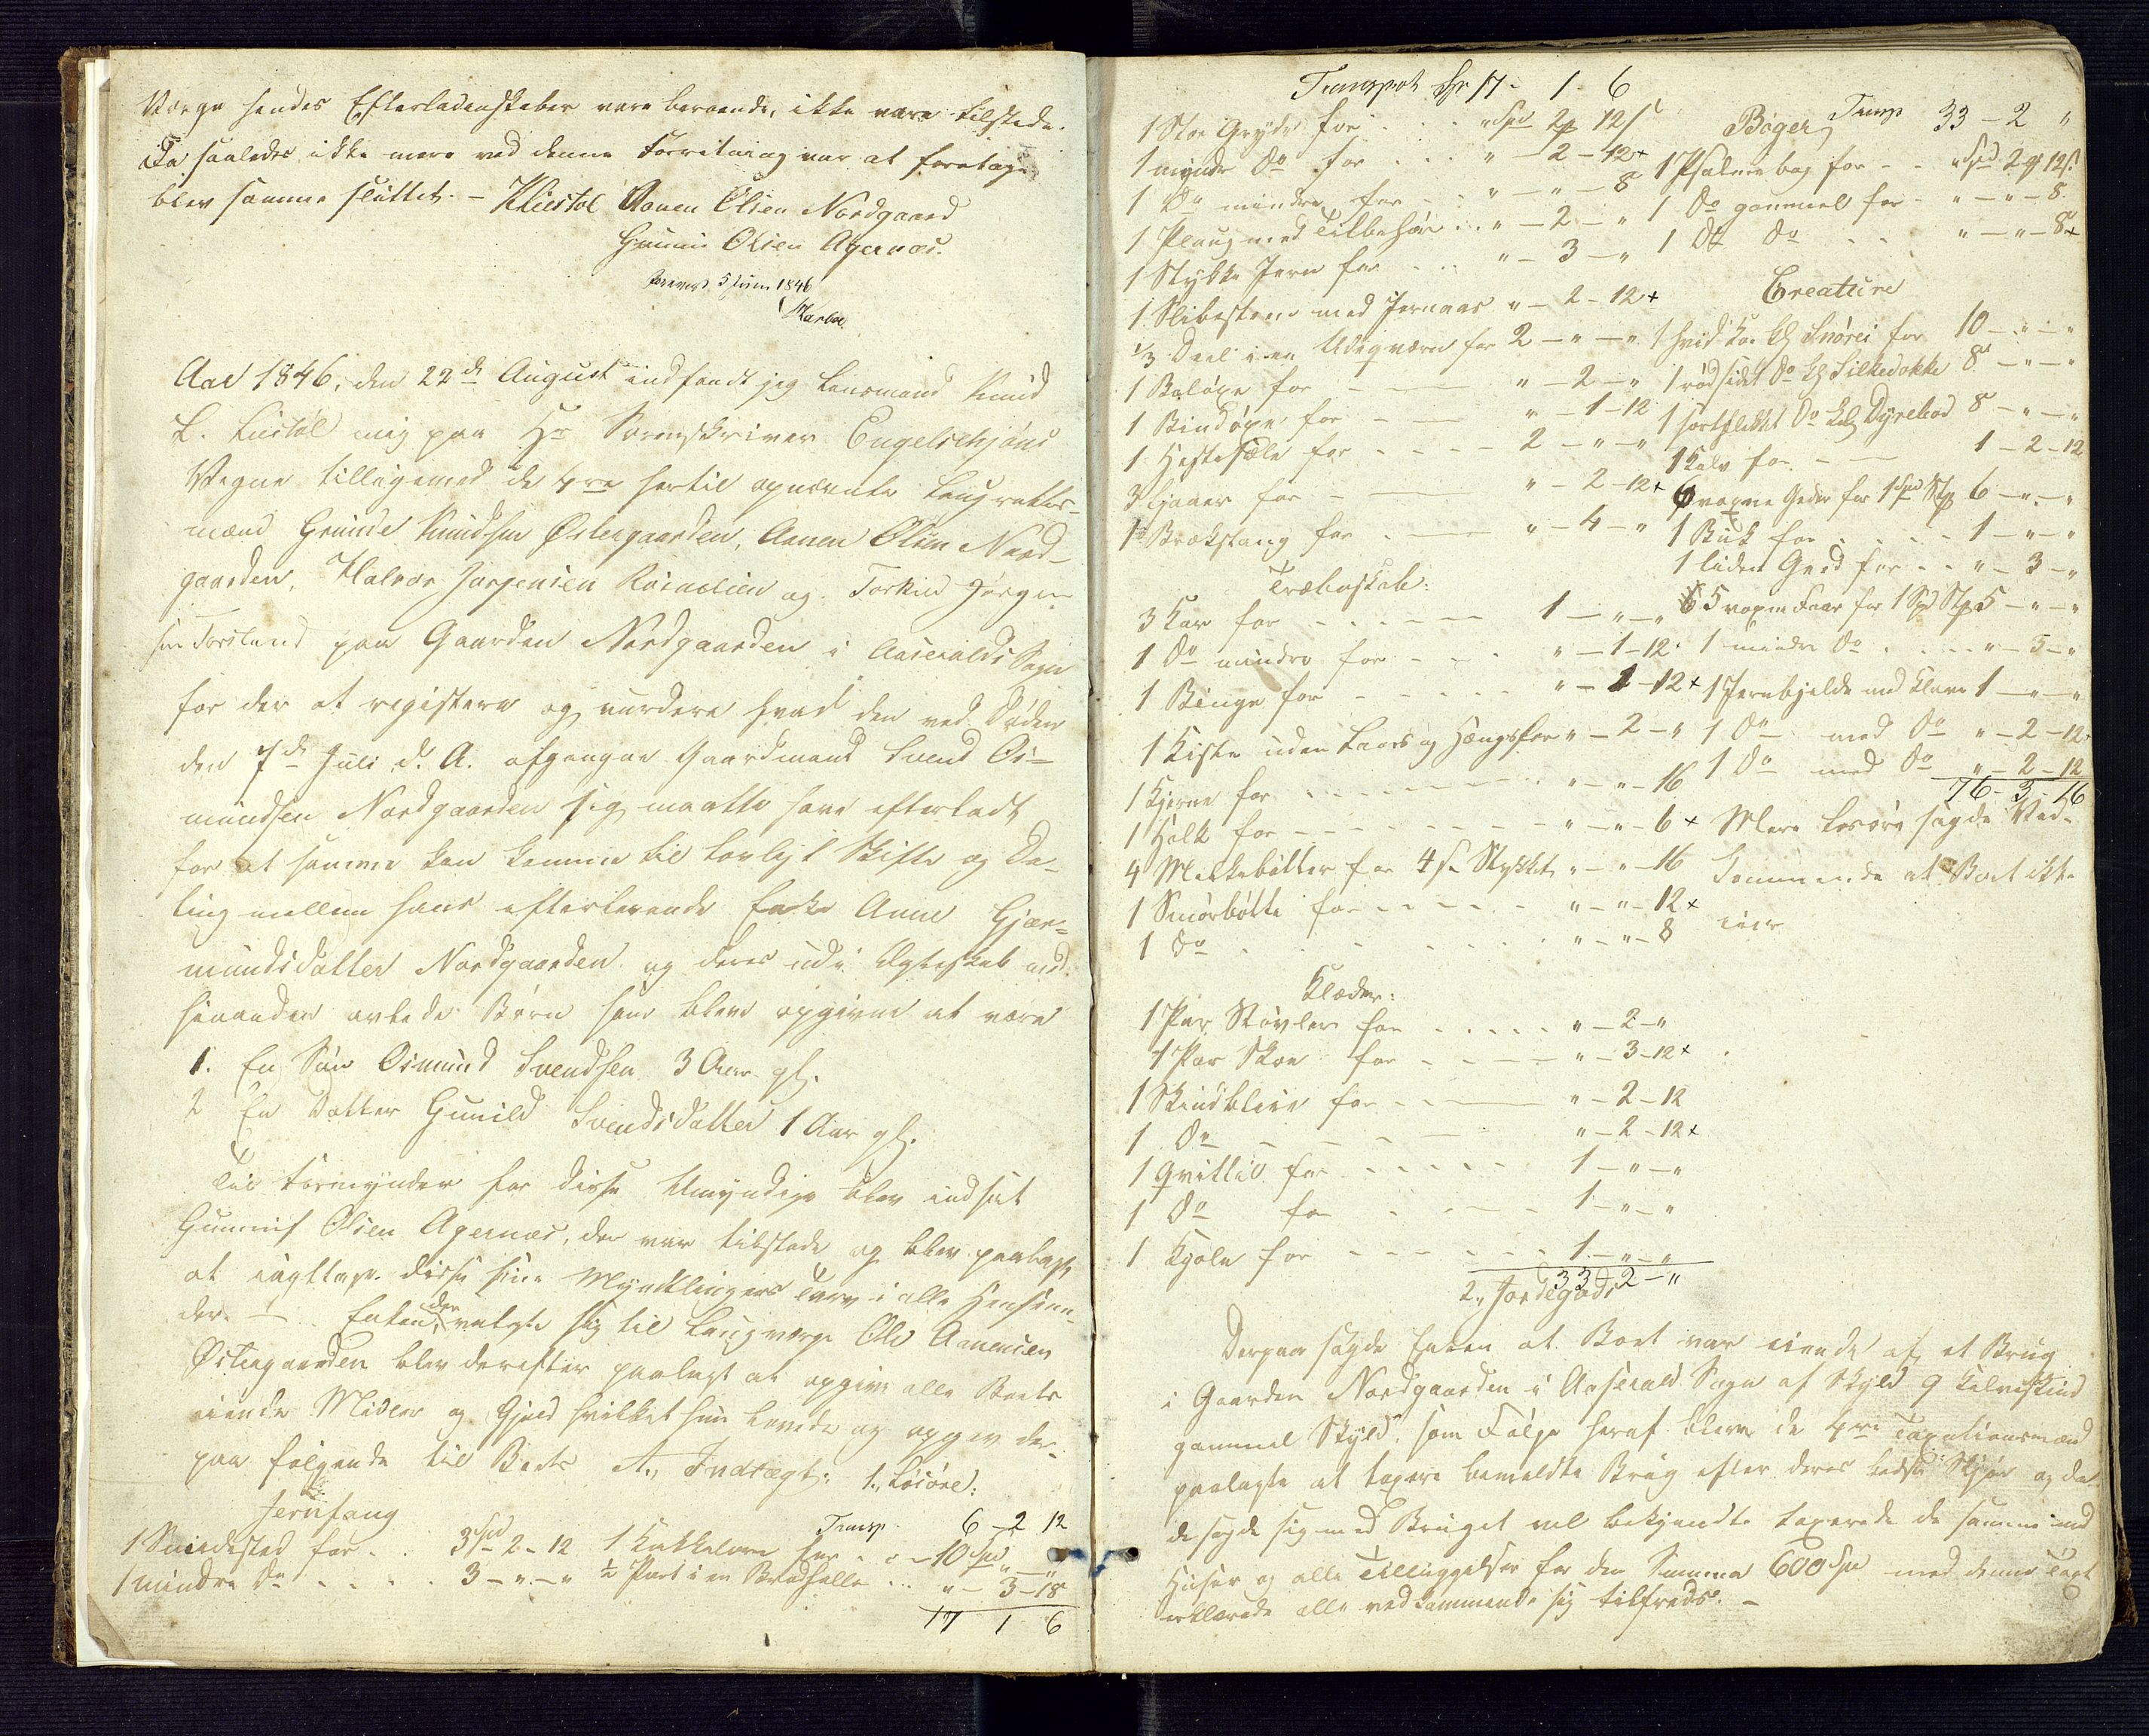 Værge hendes Efterladenskaber vare beroende, ikke vare tilstede.
Da saaledes ikke mere ved denne Forretning var at foretage,
blev samme sluttet. – KLiestøl Aanen Olsen Nordgaard
Gunnuf Olsen Agernæs.
5 Juni 1846
Aar 1846, den 22de August indfandt jeg Lensmand Knud
L. Liestøl mig paa Hr Sorenskriver Engelschjøns
Vegne tilligemed de 4re hertil opnævnte Laugrettes-
mænd Grunde Knudsen Østergaarden, Aanen Olsen Nord-
gaarden, Halvor Jørgensen Røinelien og Torkild Jørgen-
sen Forsland paa Gaarden Nordgaarden i Aaseralds Sogn
for der at registere og vurdere hvad den ved Døden
den 7de Juli d. A. afgangne Gaardmand Svend Os-
mundsen Nordgaarden sig maatte have efterladt
for at samme kan komme til lovligt Skifte og De-
ling mellem hans efterlevende Enke Anne Gjær-
mundsdatter Nordgaarden og deres udi Ægteskab med
hinanden avlede Børn som blev opgivne at være
1. En Søn Osmund Svendsen 3 Aar gl.
2 En Datter Gunild Svendsdatter 1 Aar gl.
Til Formynder for disse Umyndige blev indsat
Gunnuf Olsen Agernæs, der var tilstede og blev paalagt
at iagttage disse sine Myndlingers Tarv i alle Henseen-
der. – Enken, der valgte sig til Laugværge Ole Aanensen
Østergaarden blev derefter paalagt at opgive alle Boets
eiende Midler og Gjeld hvilket hun lovede og opgav der-
paa følgende til Boets A., Indtægt: 1., Løsøre:
Jernfang Transp. 6 2 12
1 Smidested for . . 3 Spd – 2 – 12 1 Kakkelovn for . . – 10 Spd „ „
1 mindre Do . . . . 3 – „ – „ ½ Part i en . . . „ – 3 – 18
17 1 6
Transport Spd 17 – 1 – 6
1 Stor Gryde for . . . „ Spd 2 # 12 s
1 mindre Do for . . . „ – 2 – 12 +
1 Do mindre for . . „ – „ – 8
1 Ploug med Tilbehør . . „ – 2 – „
1 Stykke Jern for . . . „ – 3 – „
1 Slibesteen med Jernaas „ – 2 – 12 +
1/3 Deel i en for 2 – „ – „
1 Boløxe for – – „ – 2 – „
1 Bindøxe for – – „ – 1 – 12
1 Hestesæle for . . . . 2 – „ – „
3 Ljaaer for – – „ – 2 – 12 +
1 Brækstang for . – „ – 4 – „
Træboskab:
3 Kar for . . . . . . 1 – „ – „
1 Do mindre for . . . „ – 1 – 12
1 Binge for . . . . . „ – 1 – 12 +
1 Kiste uden Laas og Hængsler „ – 2 – „
1 Kjerne for . . . . . . „ – „ – 16
1 Holk for . . . . . . „ – „ – 6 +
4 Melkebøtter for 4 s. Stykket „ – „ – 16
1 Smørbøtte for . . . . „ – „ – 12 +
1 Do . . . . . . „ – „ – 8
Klæder:
1 Par Støvler for . . . . „ – 2 – „
1 Par Skoe for . . . . „ – 3 – 12 +
1 for . . – „ – 2 – 12
1 Do – – – – „ – 2 – 12 +
1 for . . . . . 1 – „ – „
1 Do for . . . . 1 – „ – „
1 Kjole for . . . . . 1 – „ – „
33 – 2 – „
Transp 33 – 2 „
Bøger
1 Psalmebog for . . „ Spd 2 # 12 s.
1 Do gammel for . „ – „ – 8.
1 Do Do . . „ – „ – 8 +
Creature
1 hvid Koe k. Snørei for 10 – „ – „
1 rødsidet Do k. Silkedokke 8 – „ – „
1 sortflekket Do kal. Dyrebod 8 – „ – „
1 Kalv for . – 1 – 2 – 12
6 voxne Geder for 1 Spd Stk 6 – „ – „
1 Buk for . . . . 1 – „ – „
1 liden Geed for . . „ – 3 – „
5 voxne Faar for 1 Spd Stk 5 – „ – „
1 mindre Do . . . . „ – 3 – „
1 Jernbjelde med Klave 1 – „ – „
1 Do med Do „ – 2 – 12
1 Do med Do „ – 2 – 12
76 – 3 – 16
Mere Løsøre sagde Ved-
kommende at Boet ikke
eier
2., Jordegods
Derpaa sagde Enken at Boet var eiende af et Brug
i Gaarden Nordgaarden i Aaserald Sogn af Skyld 9 Kalveskind
gammel Skyld. Som Følge heraf bleve de 4re Taxationsmænd
paalagte at taxere bemeldte Brug efter deres bedste Skjøn og da
de sagde sig med Bruget vel bekjendte taxerede de samme med
Huse og alle Tilliggelser for den Summa 600 Spd med denne Taxt
erklærede alle vedkommende sig tilfreds. –